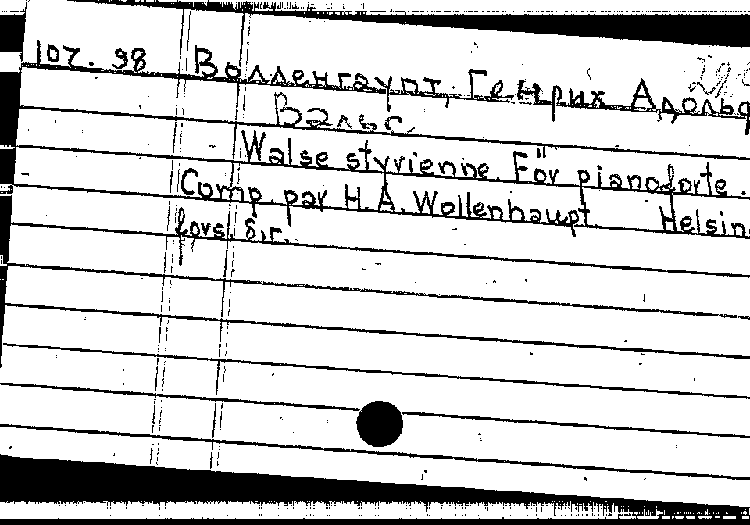 107. 98 Волленгаупт, Генрих Адольф
Вальс
Walse styrienne. För pianoforte.
Comp. par H. A. Wollenhaupt. Helsin
fors. s.r.